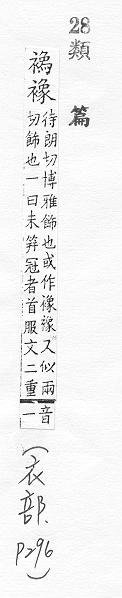 28
類篇
襐
待朗切博雅飾也或作襐襐又似兩
切飾也一曰未笄冠者首服文二重
音
一
(衣部.
P296)